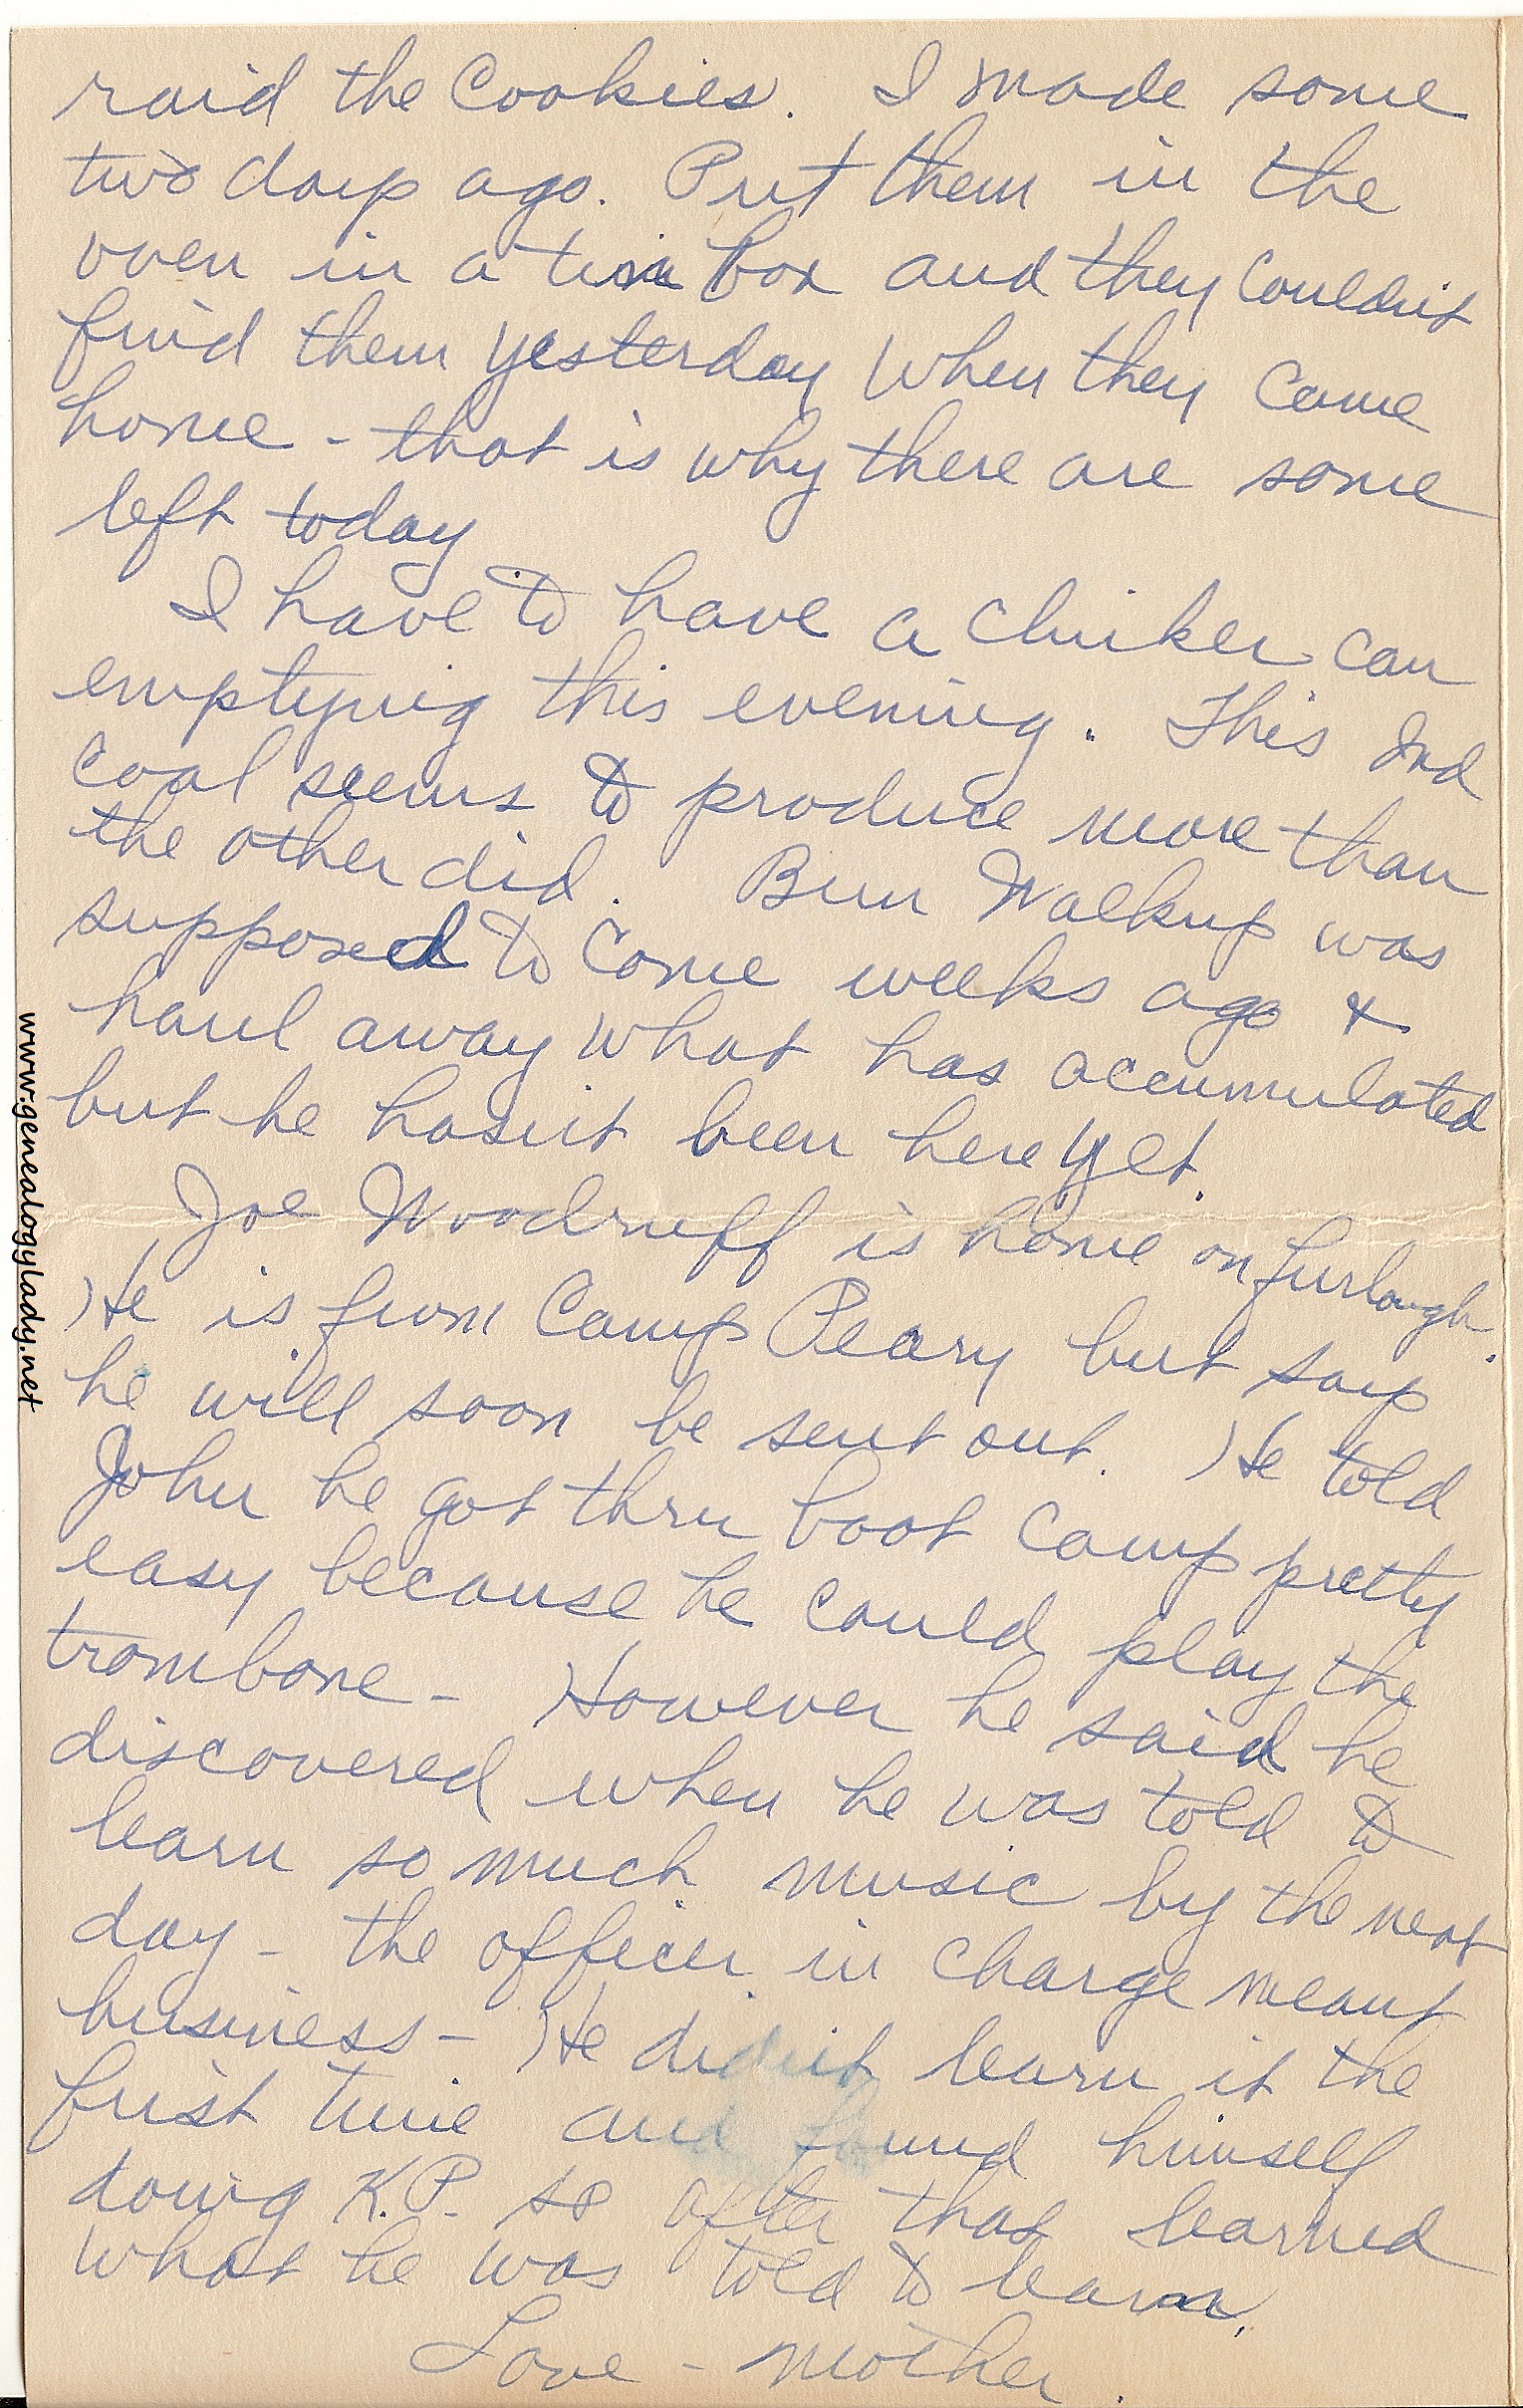 raid the cookies. I made some
two days ago. Put them in the
oven in a tin box and they couldn't
find them yesterday when they came
home - that is why there are some
left today
I have to have a clinker can
emptying this evening. This Ind
coal seems to produce more than
the other did. Bun Walkup was
supposed to come weeks ago &
haul away what has accumulated
but he hasn't been here yet.
Joe Woodruff is home on furlough.
He is from Camp Peary but says
he will soon be sent out. He told
John he got thru boot camp pretty
easy because he could play the
trombone - However he said he
discovered when he was told to
learn so much music by the next
day - the officer in charge meant
business - He didn't learn it the
first time and found himself
doing K.P. so after that learned
what he was told to learn.
Love - Mother.
www.genealogylady.net